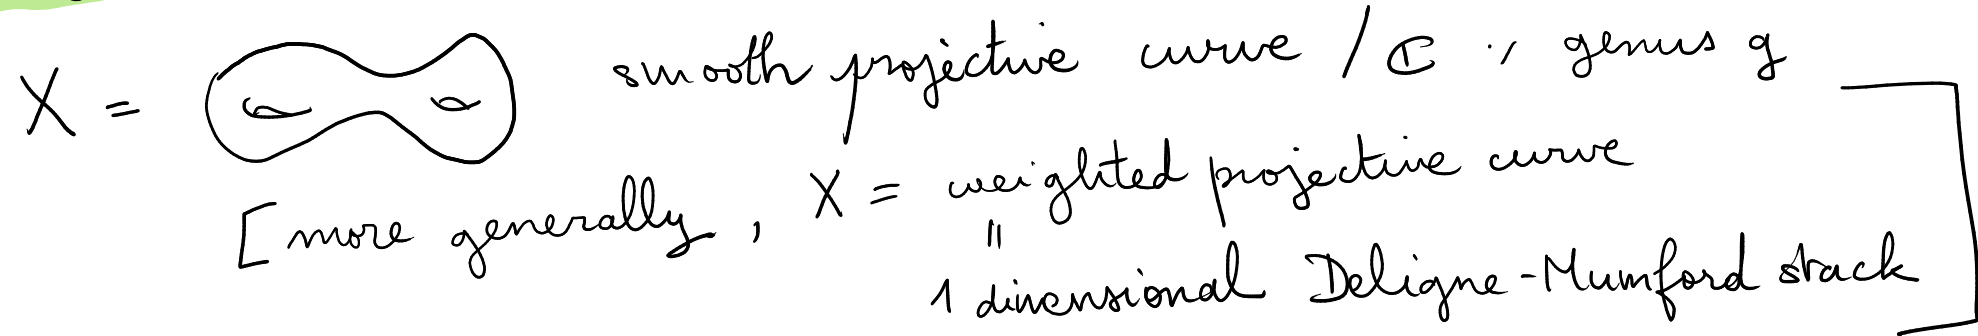 X = smooth projective curve / ℂ, genus g
[more generally, X = weighted projective curve
"
1 dimensional Deligne-Mumford stack ]